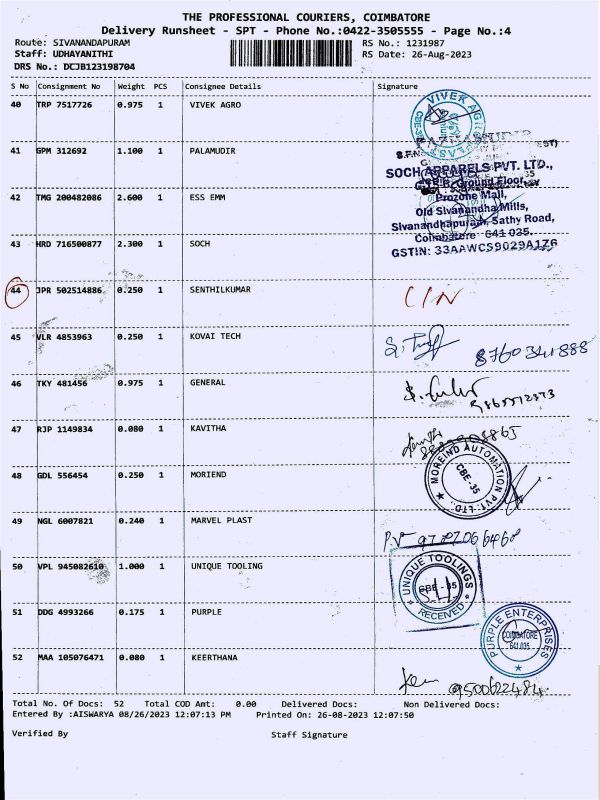 THE PROFESSIONAL COURIERS, COIMBATORE
Delivery Runsheet - SPT - Phone No.:0422-3505555 - Page No.:4
Route: SIVANANDAPURAM RS No.: 1231987
Staff: UDHAYANITHI RS Date: 26-Aug-2023
DRS No.: DCJB123198704
S No Consignment No Weight PCS Consignee Details Signature
40 TRP 7517726 0.975 1 VIVEK AGRO
VIVEK
41 GPM 312692 1.100 1 PALAMUDIR
SOCH APPARELS PVT. LTD.,
Ground Floor,
42 TMG 200482086 2.600 1 ESS EMM
Prozone Mall,
Old Sivanandha Mills,
Sivanandhapuram, Sathy Road,
43 HRD 716500877 2.300 1 SOCH
Coimbatore 641 035.
GSTIN: 33AAWCS9029A1Z6
44 JPR 502514886 0.250 1 SENTHILKUMAR
45 VLR 4853963 0.250 1 KOVAI TECH
8760341888
46 TKY 481456 0.975 1 GENERAL
47 RJP 1149834 0.080 1 KAVITHA
48 GDL 556454 0.250 1 MORIEND
MOREIND AUTOMATION PVT. LTD.
CBE - 35
49 NGL 6007821 0.240 1 MARVEL PLAST
50 VPL 945082610 1.000 1 UNIQUE TOOLING
UNIQUE TOOLINGS
CBE - 35
RECEIVED
51 DDG 4993266 0.175 1 PURPLE
PURPLE ENTERPRISES
COIMBATORE
641 035.
52 MAA 105076471 0.080 1 KEERTHANA
9500622484
Total No. Of Docs: 52 Total COD Amt: 0.00 Delivered Docs: Non Delivered Docs:
Entered By :AISWARYA 08/26/2023 12:07:13 PM Printed On: 26-08-2023 12:07:50
Verified By Staff Signature